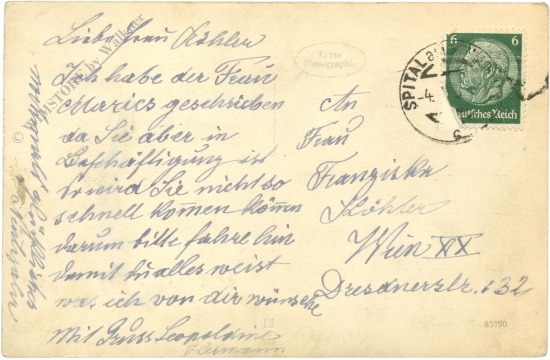 Liebe Frau Köhler
Ich habe der Frau
Marics geschrieben
da Sie aber in
Beschäftigung ist
so wird Sie nicht so
schnell komen könen
darum bitte fahre hin
damit du alles weist
was ich von dir wünsche
Mit Gruss Leopoldine
Hermann
HISTORY by Wallener
©
Echte
Photographie
An
Frau
Franziska
Köhler
Wien XX
Dresdnerstr. 132
SPITAL a
4.
c
6 6
Deutsches Reich
83990